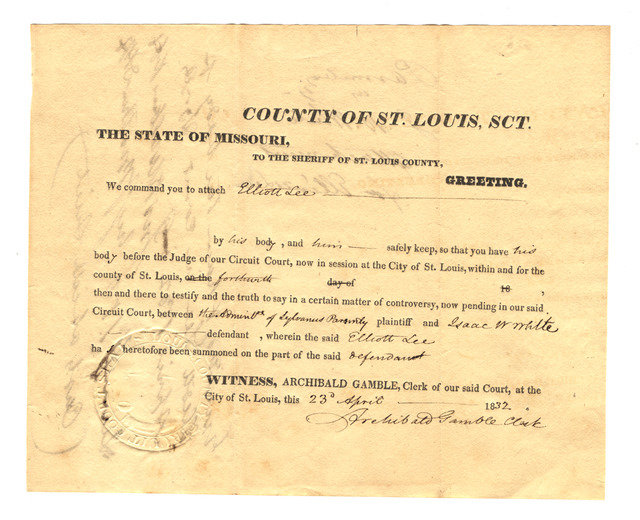 COUNTY OF ST. LOUIS, SCT.
THE STATE OF MISSOURI,
TO THE SHERIFF OF ST. LOUIS COUNTY,
GREETING.
We command you to attach Elliott Lee
by his body, and him safely keep, so that you have his
body before the Judge of our Circuit Court, now in session at the City of St. Louis, within and for the
county of St. Louis, on the forthwith day of 18 ,
then and there to testify and the truth to say in a certain matter of controversy, now pending in our said
Circuit Court, between the of Sylvanus plaintiff and Isaac W White
defendant, wherein the said Elliott Lee
ha s heretofore been summoned on the part of the said defendant
WITNESS, ARCHIBALD GAMBLE, Clerk of our said Court, at the
City of St. Louis, this 23d April 1832.
Archibald Gamble Clerk